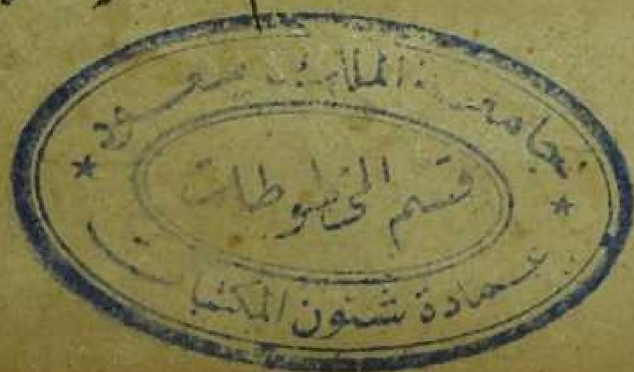 جامعة الملك سعود
* قسم المخطوطات *
عمادة شئون المكتبات